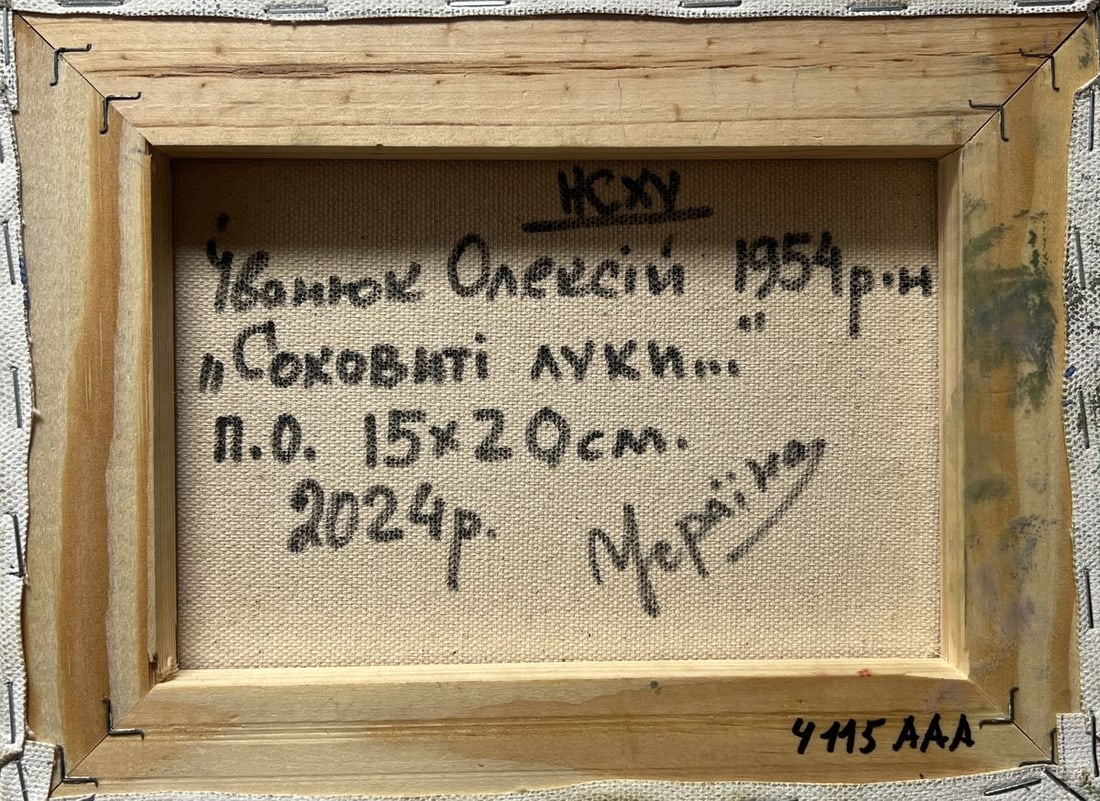 НСХУ
Іванюк Олексій 1954р.н
„Соковиті луки..."
п.о. 15х20см.
2024р. Україна
4115 ААА